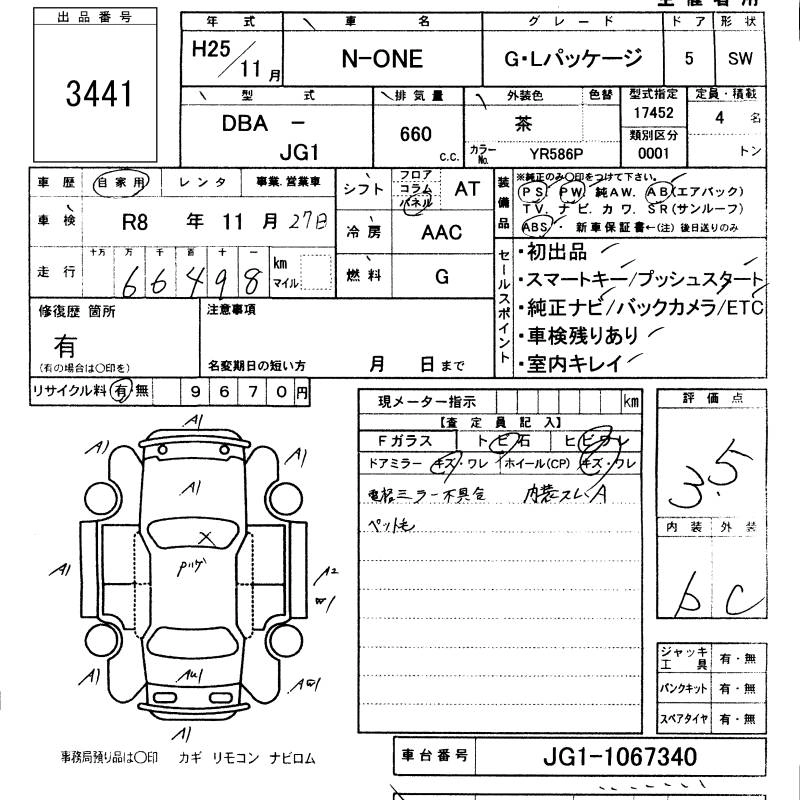 出品番号
3441
年式 車名 グレード ドア 形状
H25/11月 N-ONE G・Lパッケージ 5 SW
型式 排気量 外装色 色替 型式指定 定員・積載
DBA - JG1 660 c.c. 茶 17452 4 名
カラーNo. YR586P 類別区分 0001 トン
車歴 自家用 レンタ 事業.営業車
車検 R8 年 11 月 27日
走行 十万 万 千 百 十 一 66498 km マイル
シフト フロア コラム パネル AT
冷房 AAC
燃料 G
装備品 ※純正のみ〇印をつけて下さい。
PS PW 純AW. AB(エアバック)
TV. ナビ. カワ. SR(サンルーフ)
ABS ・ 新車保証書←(注) 後日送りのみ
セールスポイント
・初出品
・スマートキー/プッシュスタート
・純正ナビ/バックカメラ/ETC
・車検残りあり
・室内キレイ
修復歴 箇所
有
(有の場合は〇印を)
注意事項
名変期日の短い方 月 日まで
リサイクル料 有・無 9670円
現メーター指示 km
【査定員記入】
Fガラス トビ石 ヒビワレ
ドアミラー キズ・ワレ ホイール(CP) キズ・ワレ
電格ミラー不具合 内装スレ.A
ペット毛
評価点
3.5
内装 外装
b C
A1
A1 A1
A1
X
A1 A2
W1
AU1
A1
A1
ジャッキ工具 有・無
パンクキット 有・無
スペアタイヤ 有・無
事務局預り品は〇印 カギ リモコン ナビロム
車台番号 JG1-1067340